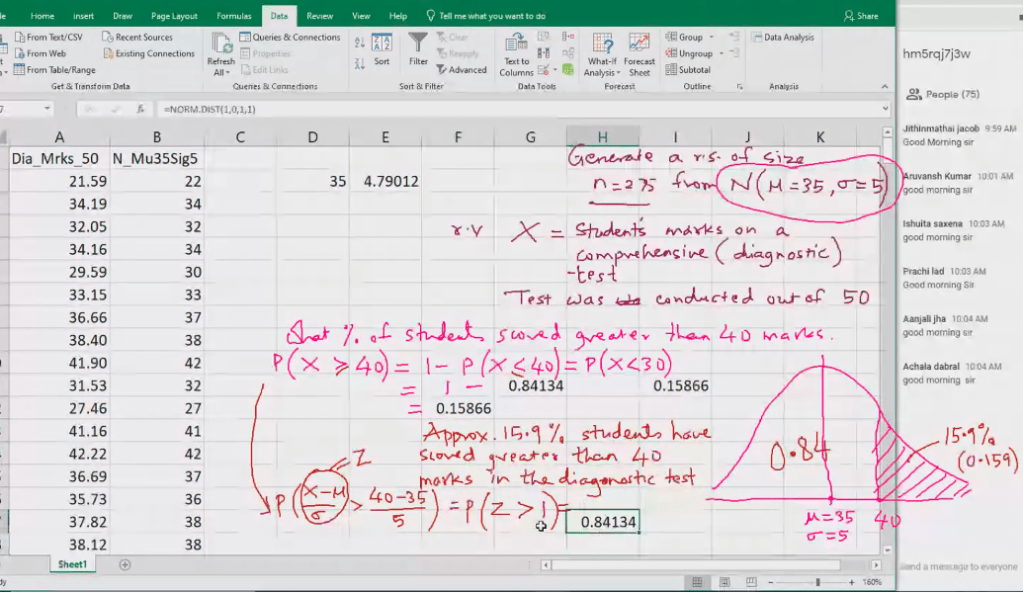 Home Insert Draw Page Layout Formulas Data Review View Help Tell me what you want to do Share
From Text/CSV Recent Sources
From Web Existing Connections
From Table/Range
Get & Transform Data
Refresh All
Queries & Connections
Properties
Edit Links
Queries & Connections
Sort Filter
Clear
Reapply
Advanced
Sort & Filter
Text to Columns
Data Tools
What-If Analysis Forecast Sheet
Forecast
Group
Ungroup
Subtotal
Outline
Data Analysis
Analysis
=NORM.DIST(1,0,1,1)
A B C D E F G H I J K
Dia_Mrks_50 N_Mu35Sig5
21.59 22 35 4.79012
34.19 34
32.05 32
34.16 34
29.59 30
33.15 33
36.66 37
38.40 38
41.90 42
31.53 32
27.46 27
41.16 41
42.22 42
36.69 37
35.73 36
37.82 38
38.12 38
Generate a r.s. of size
n=275 from N(μ=35, σ=5)
r.v X = Students marks on a
comprehensive (diagnostic)
-test
Test was conducted out of 50
What % of students scored greater than 40 marks.
P(X ≥ 40) = 1 - P(X ≤ 40) = P(X < 30)
= 1 - 0.84134 0.15866
= 0.15866
Approx. 15.9% students have
scored greater than 40
marks in the diagonastic test
Z
P(X-μ/σ > 40-35/5) = P(Z > 1) = 0.84134
0.84
15.9%
(0.159)
μ=35 40
σ=5
Sheet1
160%
hm5rqj7j3w
People (75)
Jithinmathai jacob 9:59 AM
Good Morning sir
Aruvansh Kumar 10:01 AM
good morning sir
Ishuita saxena 10:03 AM
good morning sir
Prachi lad 10:03 AM
Good morning Sir
Aanjali jha 10:04 AM
good morning sir
Achala dabral 10:04 AM
good morning sir
send a message to everyone